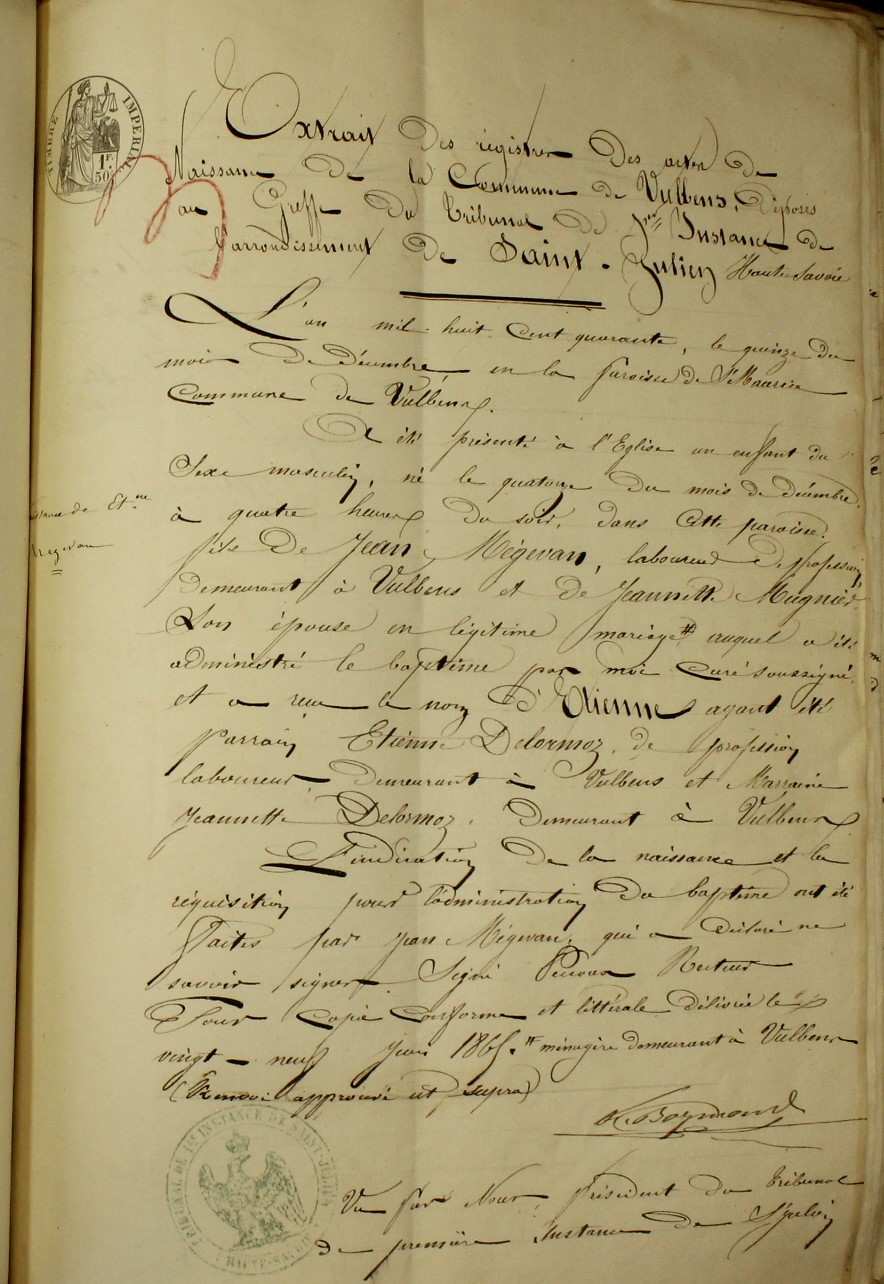 TIMBRE IMPERIAL
1F.
50
Extrait des registres des actes de
Naissance de la Commune de Vulbens, déposés
au Greffe du Tribunal de 1ère Instance de
l'arrondissement de Saint-Julien Haute Savoie
L'an mil-huit cent quarante, le quinze du
mois de décembre, en la paroisse de St Maurice
Commune de Vulbens.
A été présenté à l'Eglise un enfant du
Sexe masculin, né le quatorze du mois de décembre
à quatre heures du soir, dans cette paroisse.
Etne
Mégevan
fils de Jean Mégevan, laboureur de profession,
demeurant à Vulbens et de Jeannette Mugnier
Son épouse en légitime mariage # auquel a été
administré le baptême par moi curé soussigné.
et a reçu le nom d'Etienne ayant été
parrain Etienne Delormoz, de profession
laboureur, demeurant à Vulbens et Marraine
Jeannette Delormoz, demeurant à Vulbens
L'indication de la naissance et la
réquisition pour l'administration du baptême ont été
faites par Jean Mégevan, qui a déclaré ne
savoir signer. Signé Recteur
Pour Copie Conforme et littérale délivrée le
vingt-neuf Juin 1865. # ménagère demeurant à Vulbens
(Renvoi approuvé ut supra)
Boymond
TRIBUNAL DE 1E INSTANCE DE SAINT-JULIEN
HAUTE-SAVOIE
Vu par Nous, président du tribunal
de première Instance de St Julien